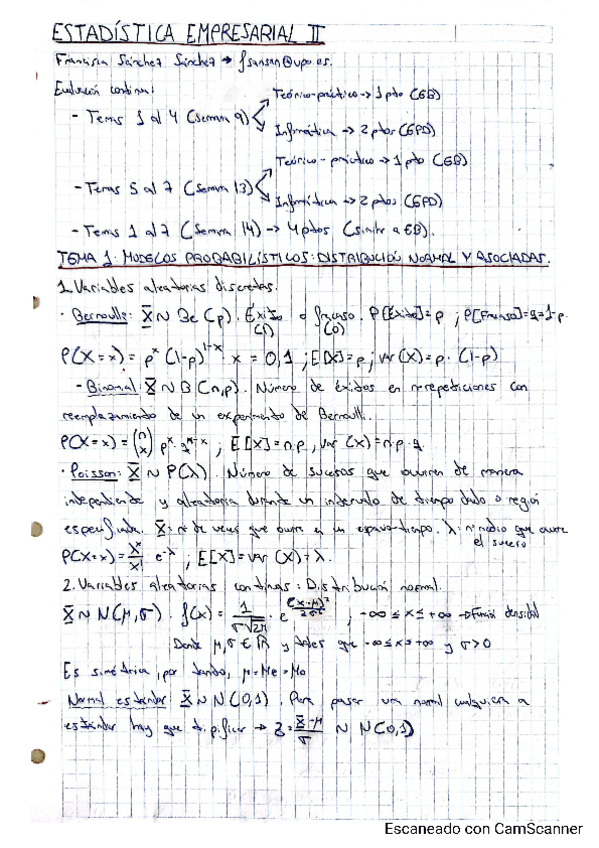 ESTADÍSTICA EMPRESARIAL II
Francisca Sánchez Sánchez → fsansan@upo.es.
Evaluación continua:
- Temas 1 al 4 (Semana 9) Teórico-práctico → 1 pto (EB)
Informática → 2 ptos (EPD)
- Temas 5 al 7 (Semana 13) Teórico-práctico → 1 pto (EB)
Informática → 2 ptos (EPD)
- Temas 1 al 7 (Semana 14) → 4 ptos (similar a EB).
TEMA 1: MODELOS PROBABILÍSTICOS: DISTRIBUCIÓN NORMAL Y ASOCIADAS.
1. Variables aleatorias discretas.
· Bernoulli: X ~ Be (p). Éxito o fracaso. P[Éxito]=p ; P[Fracaso]=q=1-p.
(1) (0)
P(X=x) = p^x (1-p)^1-x x = 0,1 ; E[X]=p ; var (X)=p. (1-p)
- Binomial: X ~ B (n,p). Número de éxitos en n repeticiones con
reemplazamiento de un experimento de Bernoulli.
P(X=x) = (n x) p^x . q^n-x ; E[X]=n.p , var (X)=n.p.q.
· Poisson: X ~ P(λ). Número de sucesos que ocurren de manera
independiente y aleatoria durante un intervalo de tiempo dado o región
especificada. X: nº de veces que ocurre en un espacio-tiempo. λ: nº medio que ocurre
el suceso
P(X=x) = λ^x/x! e^-λ ; E[X]=var (X)=λ.
2. Variables aleatorias continuas: Distribución normal.
X ~ N(μ,σ). f(x) = 1/σ√2π . e^(x-μ)²/2σ² ; -∞ ≤ x ≤ +∞ → Función densidad
Donde μ,σ ∈ ℝ y tales que -∞ ≤ x > +∞ y σ>0
Es simétrica, por tanto, μ=Me=Mo
Normal estándar: X ~ N(0,1). Para pasar una normal cualquiera a
estándar hay que tipificar → Z = X-μ/σ ~ N(0,1)
Escaneado con CamScanner